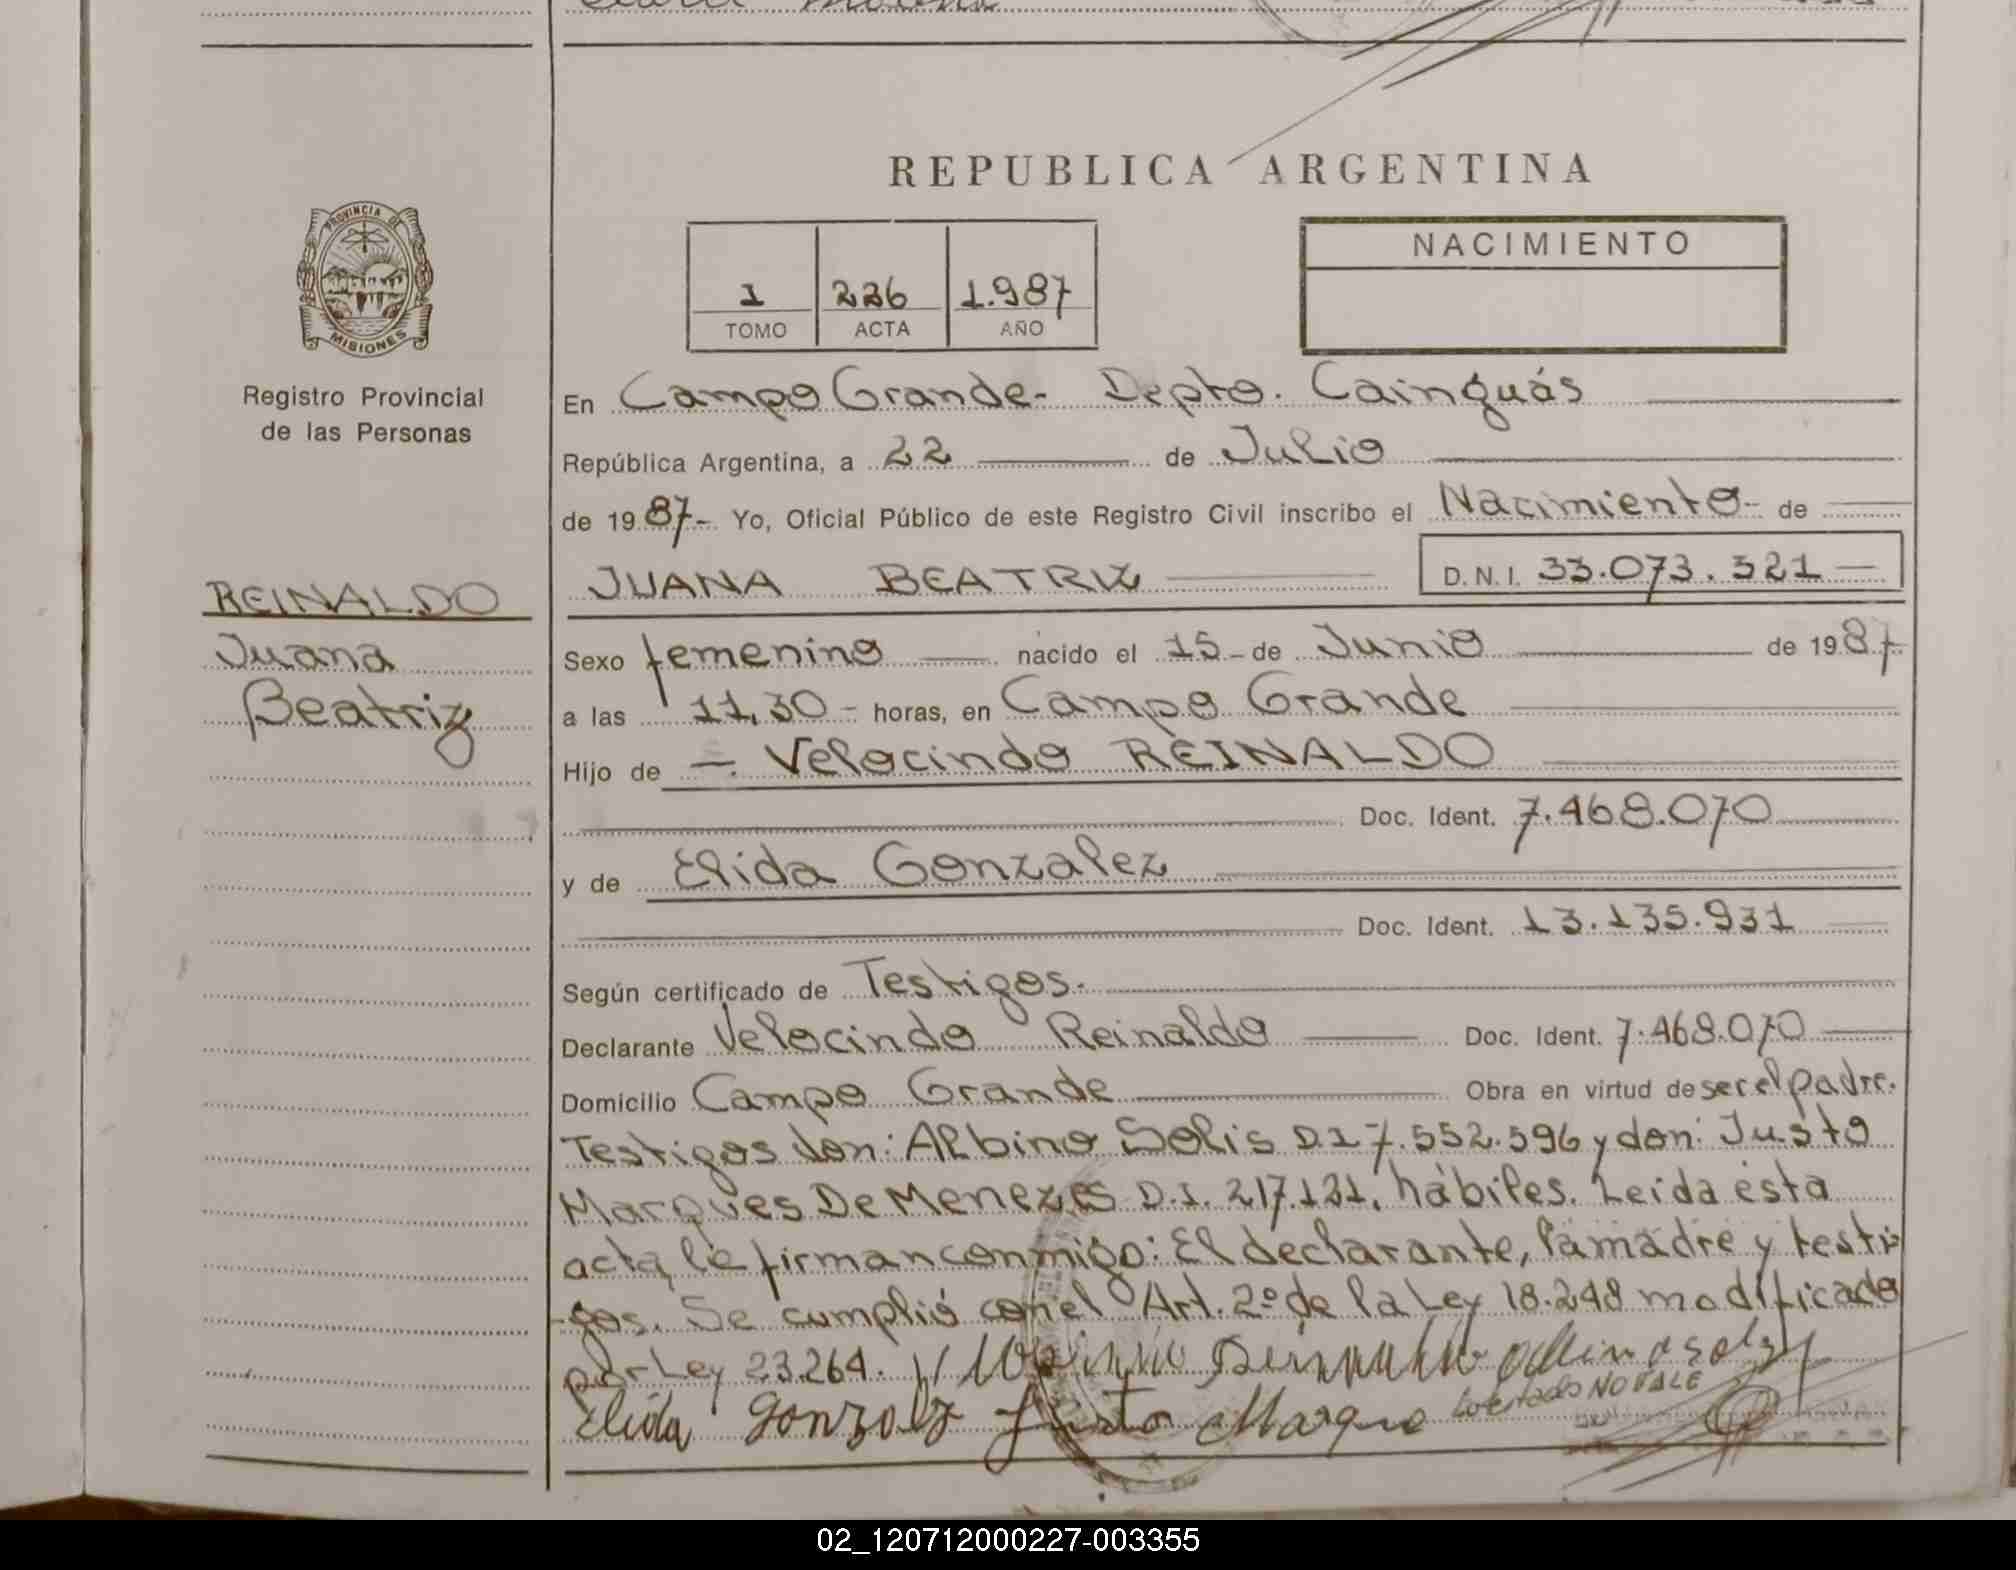 REPUBLICA ARGENTINA
PROVINCIA DE
MISIONES
Registro Provincial
de las Personas
1 226 1.987
TOMO ACTA AÑO
NACIMIENTO
En Campo Grande- Depto. Cainguás
República Argentina, a 22 de Julio
de 1987- Yo, Oficial Público de este Registro Civil inscribo el Nacimiento- de
JUANA BEATRIZ D.N.I. 33.073.321
REINALDO
Juana
Beatriz
Sexo femenino nacido el 15-de Junio de 1987
a las 11,30- horas, en Campo Grande
Hijo de Velocindo REINALDO
Doc. Ident. 7.468.070
y de Elida Gonzalez
Doc. Ident. 13.135.931
Según certificado de Testigos.
Declarante Velocindo Reinaldo Doc. Ident. 7.468.070
Domicilio Campo Grande Obra en virtud de ser el padre.
Testigos don: Albino Solis D.I 7.552.596 y don: Justo
Marques De Menezes D.I. 217.121, hábiles. Leida ésta
acta, le firman conmigo: El declarante, la madre y testi-
-gos. Se cumplió con el Art. 2º de la Ley 18.248 modificado
por Ley 23.264.
Elida Gonzalz Justo Marque NO VALE
02_120712000227-003355